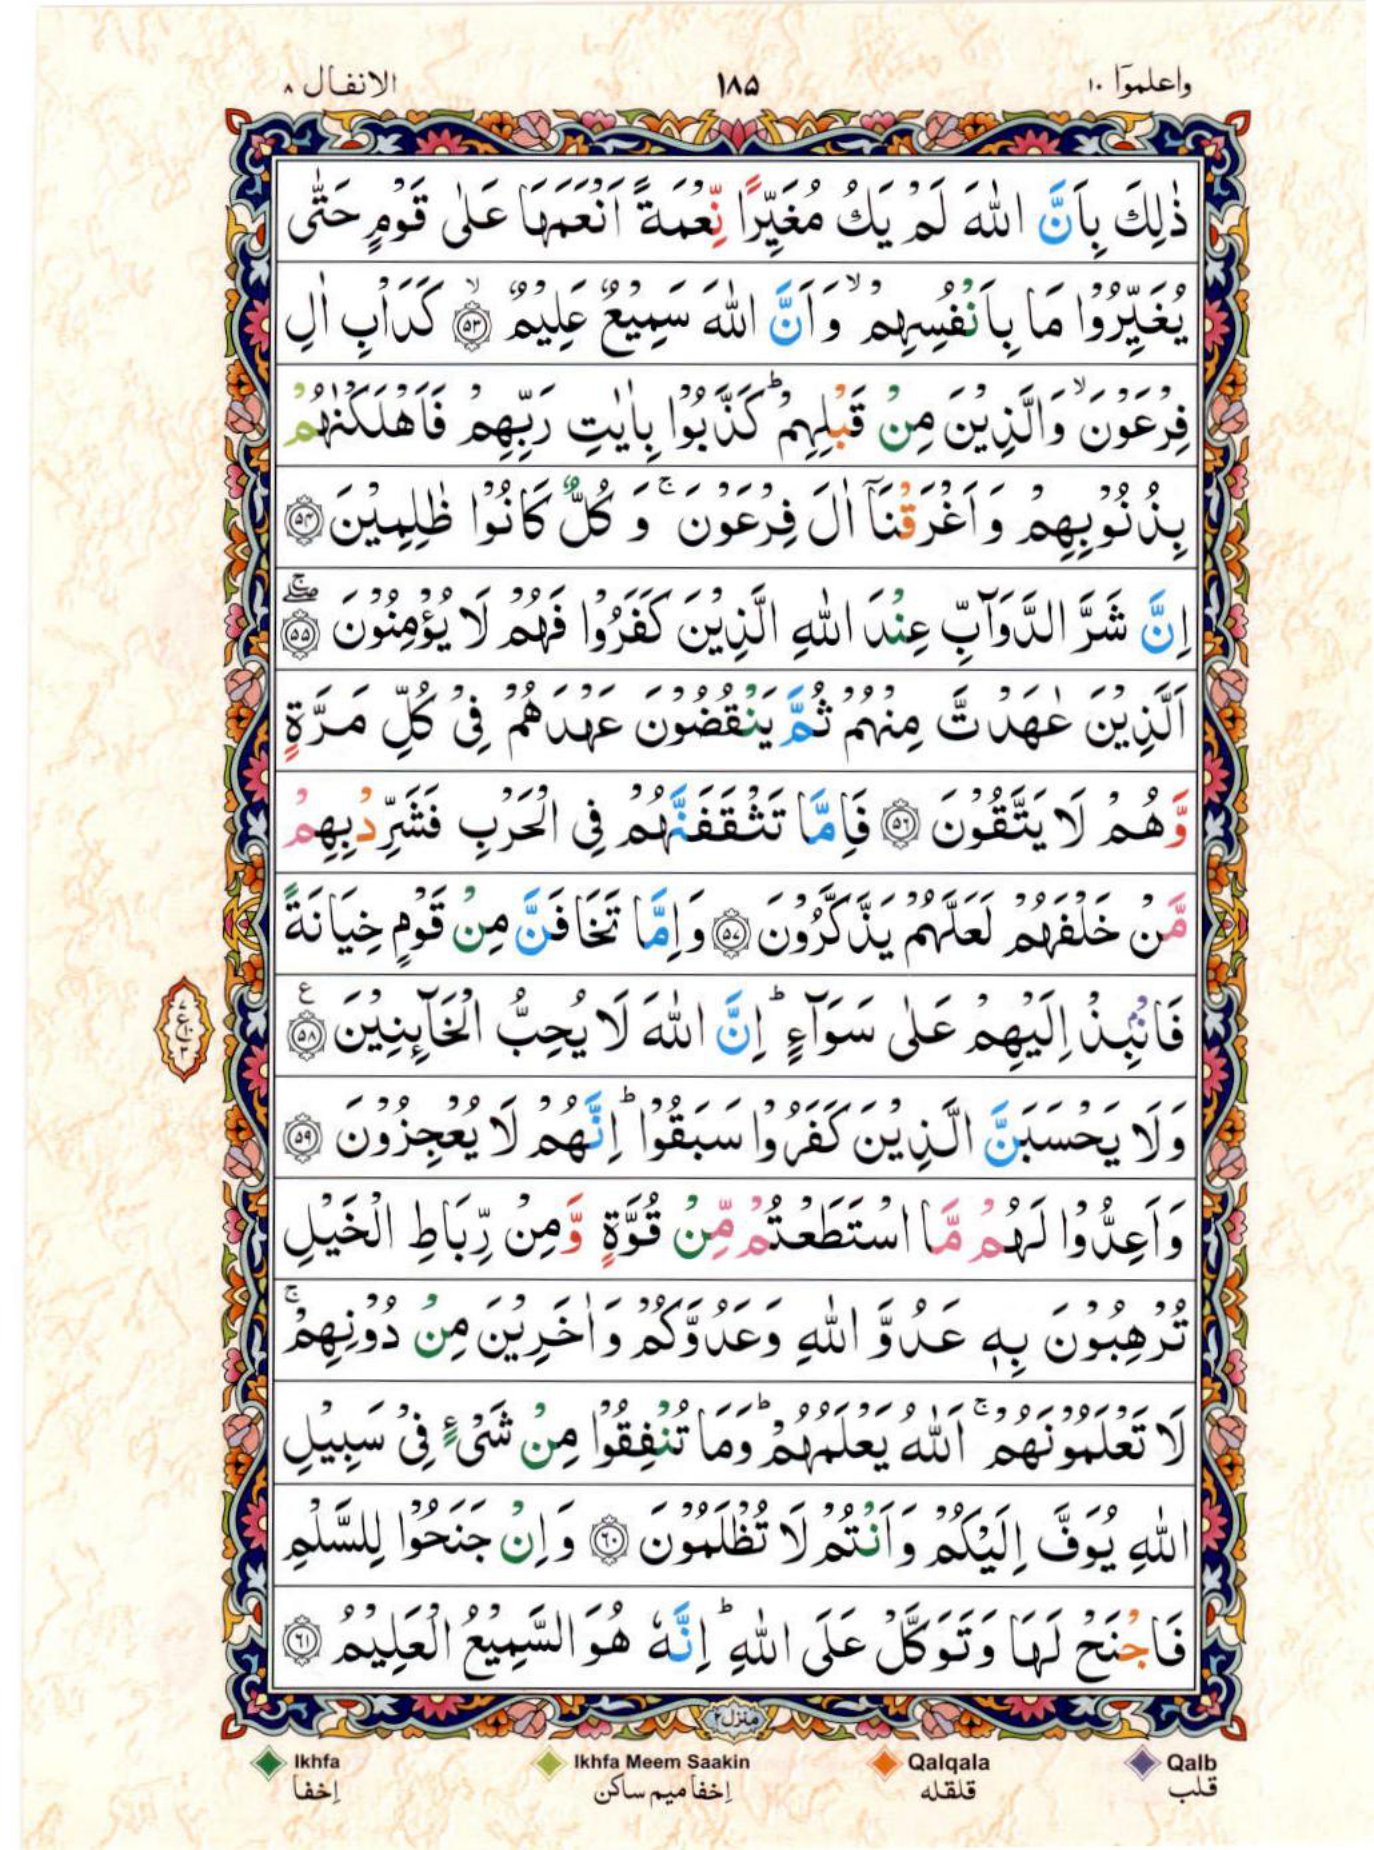 واعلموٓا ١٠
١٨٥
الانفال ٨
ذٰلِكَ بِاَنَّ اللّٰهَ لَمۡ يَكُ مُغَيِّرًا نِّعۡمَةً اَنۡعَمَهَا عَلٰى قَوۡمٍ حَتّٰى
يُغَيِّرُوۡا مَا بِاَنۡفُسِهِمۡۙ وَاَنَّ اللّٰهَ سَمِيۡعٌ عَلِيۡمٌۙ ﴿۵۳﴾ كَدَاۡبِ اٰلِ
فِرۡعَوۡنَۙ وَالَّذِيۡنَ مِنۡ قَبۡلِهِمۡؕ كَذَّبُوۡا بِاٰيٰتِ رَبِّهِمۡ فَاَهۡلَكۡنٰهُمۡ
بِذُنُوۡبِهِمۡ وَاَغۡرَقۡنَاۤ اٰلَ فِرۡعَوۡنَۚ وَكُلٌّ كَانُوۡا ظٰلِمِيۡنَ ﴿۵۴﴾
اِنَّ شَرَّ الدَّوَآبِّ عِنۡدَ اللّٰهِ الَّذِيۡنَ كَفَرُوۡا فَهُمۡ لَا يُؤۡمِنُوۡنَ ۖۚ ﴿۵۵﴾
اَلَّذِيۡنَ عٰهَدْتَّ مِنۡهُمۡ ثُمَّ يَنۡقُضُوۡنَ عَهۡدَهُمۡ فِىۡ كُلِّ مَرَّةٍ
وَّهُمۡ لَا يَتَّقُوۡنَ ﴿۵۶﴾ فَاِمَّا تَثۡقَفَنَّهُمۡ فِى الۡحَرۡبِ فَشَرِّدۡ بِهِمۡ
مَّنۡ خَلۡفَهُمۡ لَعَلَّهُمۡ يَذَّكَّرُوۡنَ ﴿۵۷﴾ وَاِمَّا تَخَافَنَّ مِنۡ قَوۡمٍ خِيَانَةً
فَانْۢبِذۡ اِلَيۡهِمۡ عَلٰى سَوَآءٍؕ اِنَّ اللّٰهَ لَا يُحِبُّ الۡخَآئِنِيۡنَ ﴿۵۸﴾ ع
٧
ع ١٠
٣
وَلَا يَحۡسَبَنَّ الَّذِيۡنَ كَفَرُوۡا سَبَقُوۡاؕ اِنَّهُمۡ لَا يُعۡجِزُوۡنَ ﴿۵۹﴾
وَاَعِدُّوۡا لَهُمۡ مَّا اسۡتَطَعۡتُمۡ مِّنۡ قُوَّةٍ وَّمِنۡ رِّبَاطِ الۡخَيۡلِ
تُرۡهِبُوۡنَ بِهٖ عَدُوَّ اللّٰهِ وَعَدُوَّكُمۡ وَاٰخَرِيۡنَ مِنۡ دُوۡنِهِمۡۚ
لَا تَعۡلَمُوۡنَهُمۡۚ اَللّٰهُ يَعۡلَمُهُمۡؕ وَمَا تُنۡفِقُوۡا مِنۡ شَىۡءٍ فِىۡ سَبِيۡلِ
اللّٰهِ يُوَفَّ اِلَيۡكُمۡ وَاَنۡتُمۡ لَا تُظۡلَمُوۡنَ ﴿۶۰﴾ وَاِنۡ جَنَحُوۡا لِلسَّلۡمِ
فَاجۡنَحۡ لَهَا وَتَوَكَّلۡ عَلَى اللّٰهِؕ اِنَّهٗ هُوَ السَّمِيۡعُ الۡعَلِيۡمُ ﴿۶۱﴾
منزل ٢
Ikhfa Ikhfa Meem Saakin Qalqala Qalb
إخفا إخفا ميم ساكن قلقله قلب